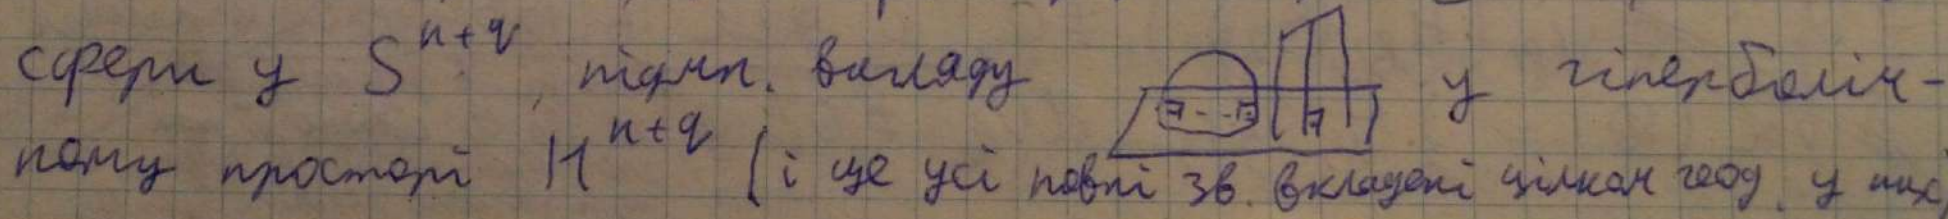 сфери у S^{n+q}, підмн. вигляду у гіперболіч-
ному просторі H^{n+q} (і ще усі повні зв. вкладені цілком геод. у них)